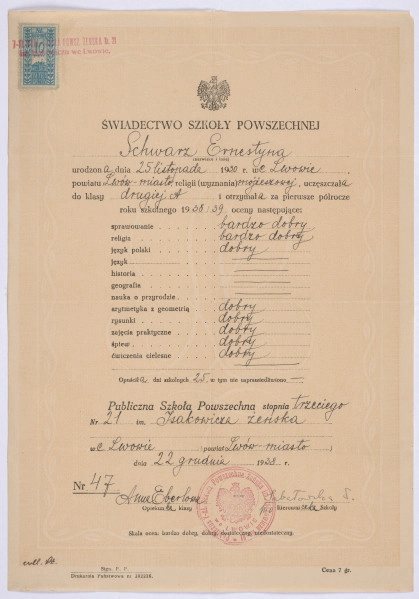 ŚWIADECTWO SZKOŁY POWSZECHNEJ
Schwarz Ernestyna
(nazwisko i imię)
urodzona dnia 25 listopada 1930 r. we Lwowie,
powiatu Lwów-miasto, religii (wyznania) mojżeszowej, uczęszczała
do klasy drugiej A i otrzymała za pierwsze półrocze
roku szkolnego 1938/39 oceny następujące:
sprawowanie bardzo dobry
religia bardzo dobry
język polski dobry
język
historia
geografia
nauka o przyrodzie
arytmetyka z geometrią dobry
rysunki dobry
zajęcia praktyczne dobry
śpiew dobry
ćwiczenia cielesne dobry
Opuściła dni szkolnych 25, w tym nie usprawiedliwiono —
Publiczna Szkoła Powszechna stopnia trzeciego
Nr 21 im. Isakowicza żeńska
we Lwowie powiat Lwów-miasto
dnia 22 grudnia 1938 r.
Nr 47
Opiekun klasy Kierownik Szkoły
Skala ocen: bardzo dobry, dobry, dostateczny, niedostateczny.
Druk. P. P. Cena 7 gr.
Drukarnia Państwowa